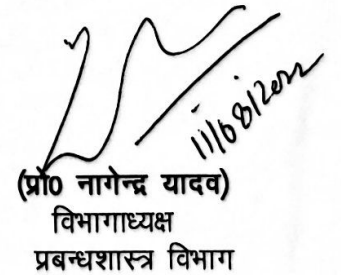 11/08/2022
(प्रो0 नागेन्द्र यादव)
विभागाध्यक्ष
प्रबन्धशास्त्र विभाग